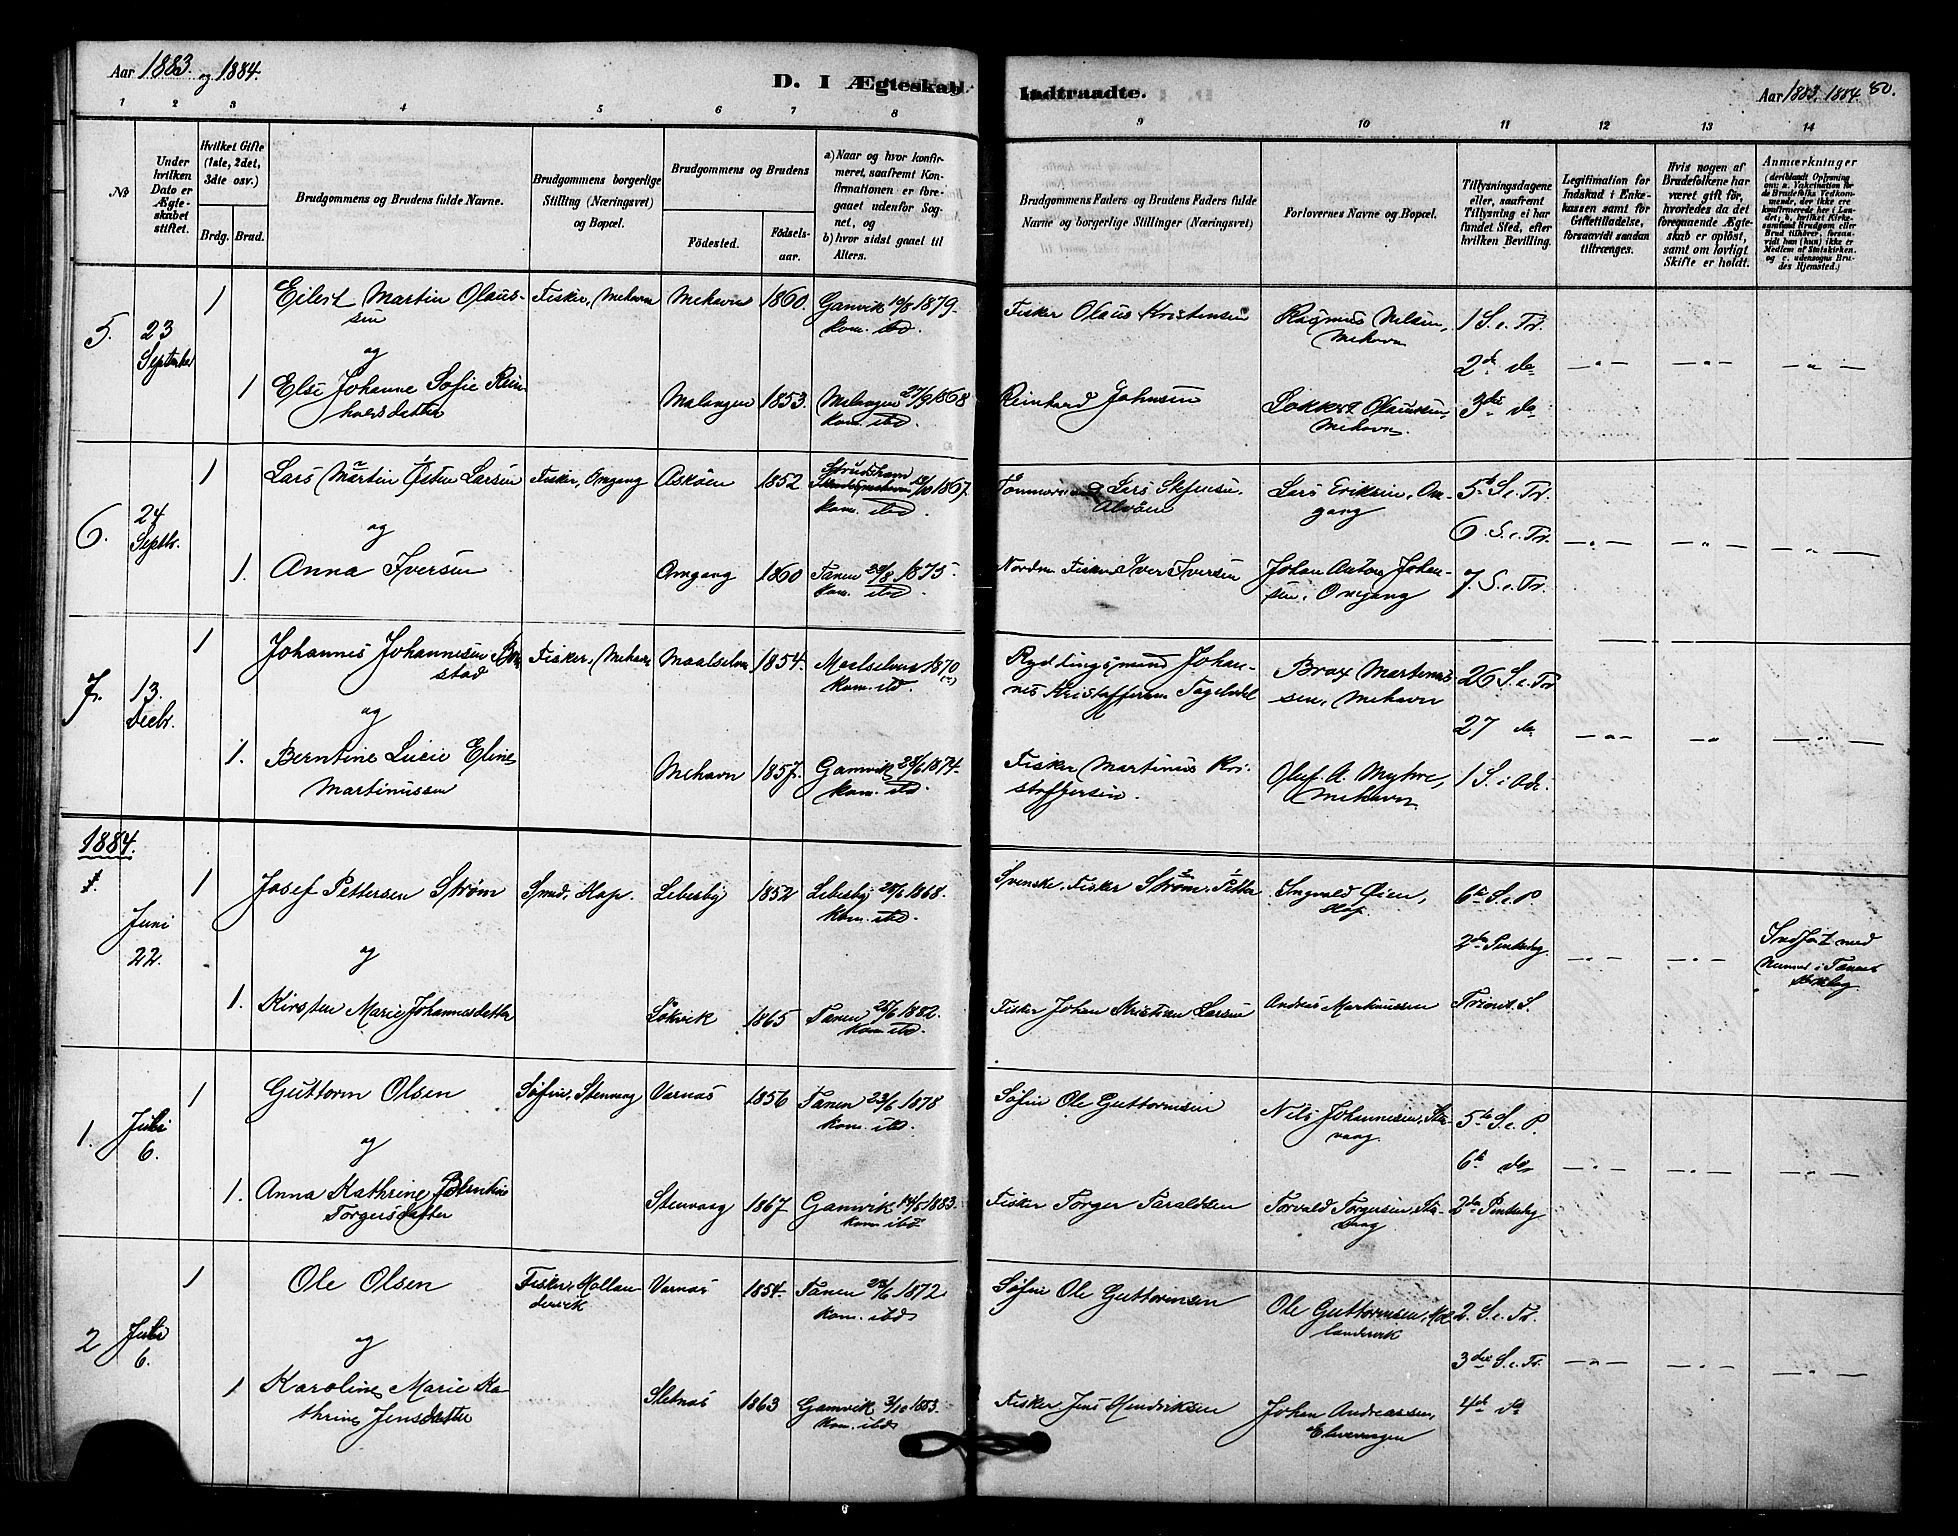 Aar 1883 og 1884.
D. I Ægteskab
Indtraadte.
Aar 1883. 1884. 80.
1 2 3 4 5 6 7 8 9 10 11 12 13 14
No
Under hvilken Dato er Ægteskabet stiftet.
Hvilket Gifte (1ste, 2det, 3die osv.)
Brdg. Brud.
Brudgommens og Brudens fulde Navne.
Brudgommens borgerlige Stilling (Næringsvei) og Bopæl.
Brudgommens og Brudens
Födested.
Födsels-aar.
a) Naar og hvor konfirmeret, saafremt Konfirmationen er foregaaet udenfor Sognet, og
b) hvor sidst gaaet til Alters.
Brudgommens Faders og Brudens Faders fulde Navne og borgerlige Stillinger (Næringsvei)
Forlovernes Navne og Bopæl.
Tillysningsdagene eller, saafremt Tillysning ei har fundet Sted, efter hvilken Bevilling.
Legitimation for Indskud i Enkekassen samt for Giftetilladelse, forsaavidt saadan tiltrænges.
Hvis nogen af Brudefolkene har været gift för, hvorledes da det foregaaende Ægteskab er oplöst, samt om lovligt Skifte er holdt.
Anmærkninger
(deriblandt Oplysning om: a. Vakcination for de Brudefolks Vedkommende, der ikke ere konfirmerede her i Landet; b. hvilket Kirkesamfund Brudgom eller Brud tilhörer, forsaavidt han (hun) ikke er Medlem af Statskirken. og c. udensogns Brudes Hjemsted.)
5. 23 September
1 Eilert Martin Olaussen Fisker, Mehavn Mehavn 1860 Gamvik 10/8 1879. kom. ibd. Fisker Olaus Kristensen Rasmus Nilsen, Mehavn 1 S. e. Tr.
og 2de do
1 Else Johanne Sofie Reinholdsdatter Malangen 1853. Malangen 27/9 1868 kom. ibd. Reinhard Johnsen Olaussen, Mehavn. 3die do
6. 24 Septbr.
1 Lars Martin Østen Larsen Fisker, Omgang Askøen 1852 Strudshavn 1867. kom. ibd. Lars Stefensen. Alvøen Lars Eriksen, Omgang 5te S. e. Tr.
og 6. S. e. Tr.
1. Anna Iversen Omgang 1860 Tanen 29/8 1875. kom. ibd. Nordm Fisker Iver Iversen Johan Anton Johansen, Omgang 7. S. e. Tr.
7. 13. Decbr.
1 Johannes Johannesen Fisker, Mehavn Maalselven 1854. Maalselven 1870 kom. ibd. Rydningsmand Johannes Kristoffersen Martinussen, Mehavn 26 S. e. Tr
og 27 do
1. Berntine Lucie Eline Martinussen Mehavn 1857. Gamvik 1874. kom. ibd. Fisker Martinus Kristoffersen. Oluf A. Myhre, Mehavn 1 S. i Adv.
1884.
1. Juni 22.
1 Josef Pettersen Strøm Smed, Hop. Lebesby 1852 Lebesby 28/6 1868. kom. ibd. Svensk. Fisker Strøm, Petter Ingvald Øien, Hop. 6te S. e. P.
og 2den Pintsedag
1. Kirsten Marie Johannesdatter 1865 Tanen 25/6 1882. kom. ibd. Fisker Johan Kristian Larsen Andreas Martinussen Trinit. S.
Indført med Numer i Tanens Kirkebog.
1. Juli 6.
1 Guttorm Olsen Søfin, Stenvaag Varnæs 1856 Tanen 23/6 1878 kom. ibd. Søfin Ole Guttormsen Nils Johannesen, Stenvaag. 5te S. e. P.
og 6te do
1. Anna Kathrine Berntine Torgersdatter Stenvaag 1867 Gamvik 1883. kom. ibd. Fisker Torger Taraldsen Torvald Torgersen, Stenvaag 2den Pintsedag
2 Juli 6.
1 Ole Olsen Fisker, Mollandsvik Varnæs 1854. Tanen 23/6 1872 kom. ibd. Søfin Ole Guttormsen Ole Guttormsen, Mollandsvik 2. S. e. Tr.
og 3die S. e. Tr.
1 Karoline Marie Kathrine Jensdatter Sletnæs 1863 Gamvik kom. ibd. Fisker Jens Hendriksen Johan Andreassen, 4de do